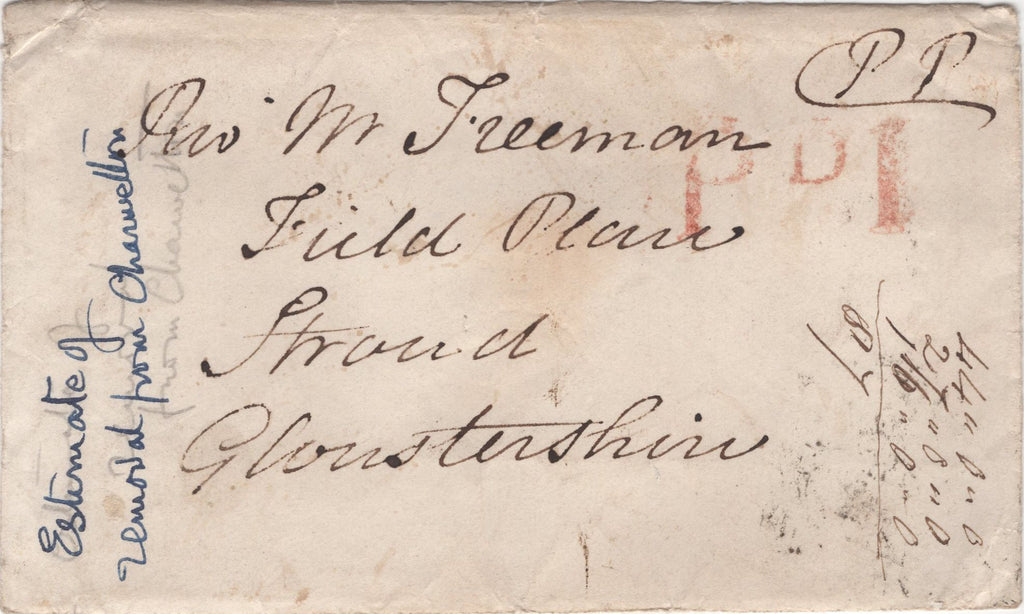 P P
Rev Mr Freeman
Field Place
Stroud
Gloustershire
P D 1
Estimate of
removal from Charwelton
from Charwelton
44 " 0 " 0
27 " 0 " 0
16 " 0 " 0
87